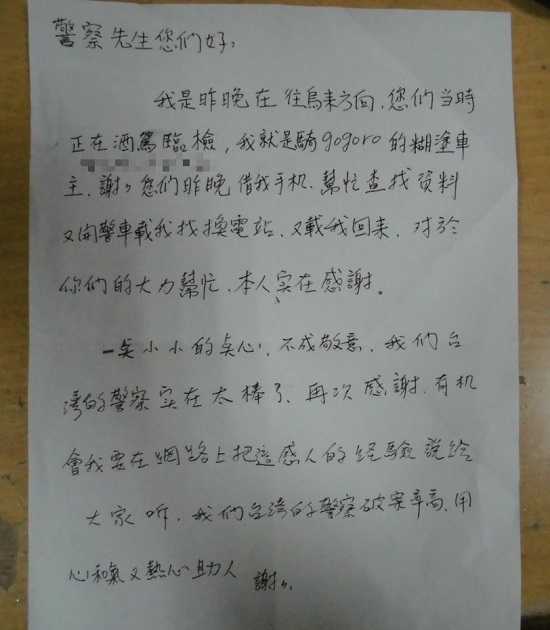 警察先生您们好:
我是昨晚在往烏來方向,您们当時
正在酒駕臨檢,我就是騎gogoro的糊塗車
主.謝〃您们昨晚借我手机.幫忙查找资料
又開警車載我找換電站.又載我回来.对於
你們的大力幫忙、本人实在感謝。
一点小小的点心,不成敬意.我们台
湾的警察实在太棒了、再次感謝.有机
會我要在網路上把這感人的經驗說给
大家听.我们台湾的警察破案率高.用
心和氣又熱心助人 謝〃.